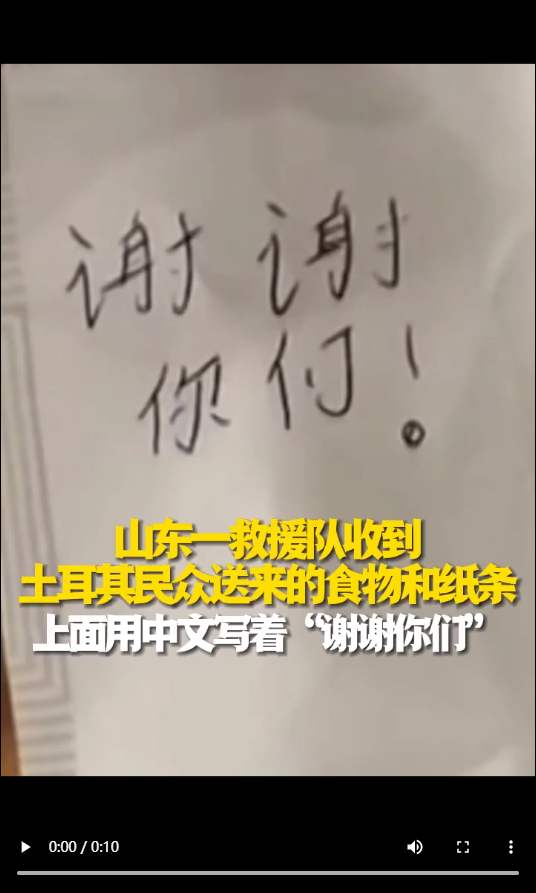 谢谢
你们！
山东一救援队收到
土耳其民众送来的食物和纸条
上面用中文写着“谢谢你们”
0:00 / 0:10